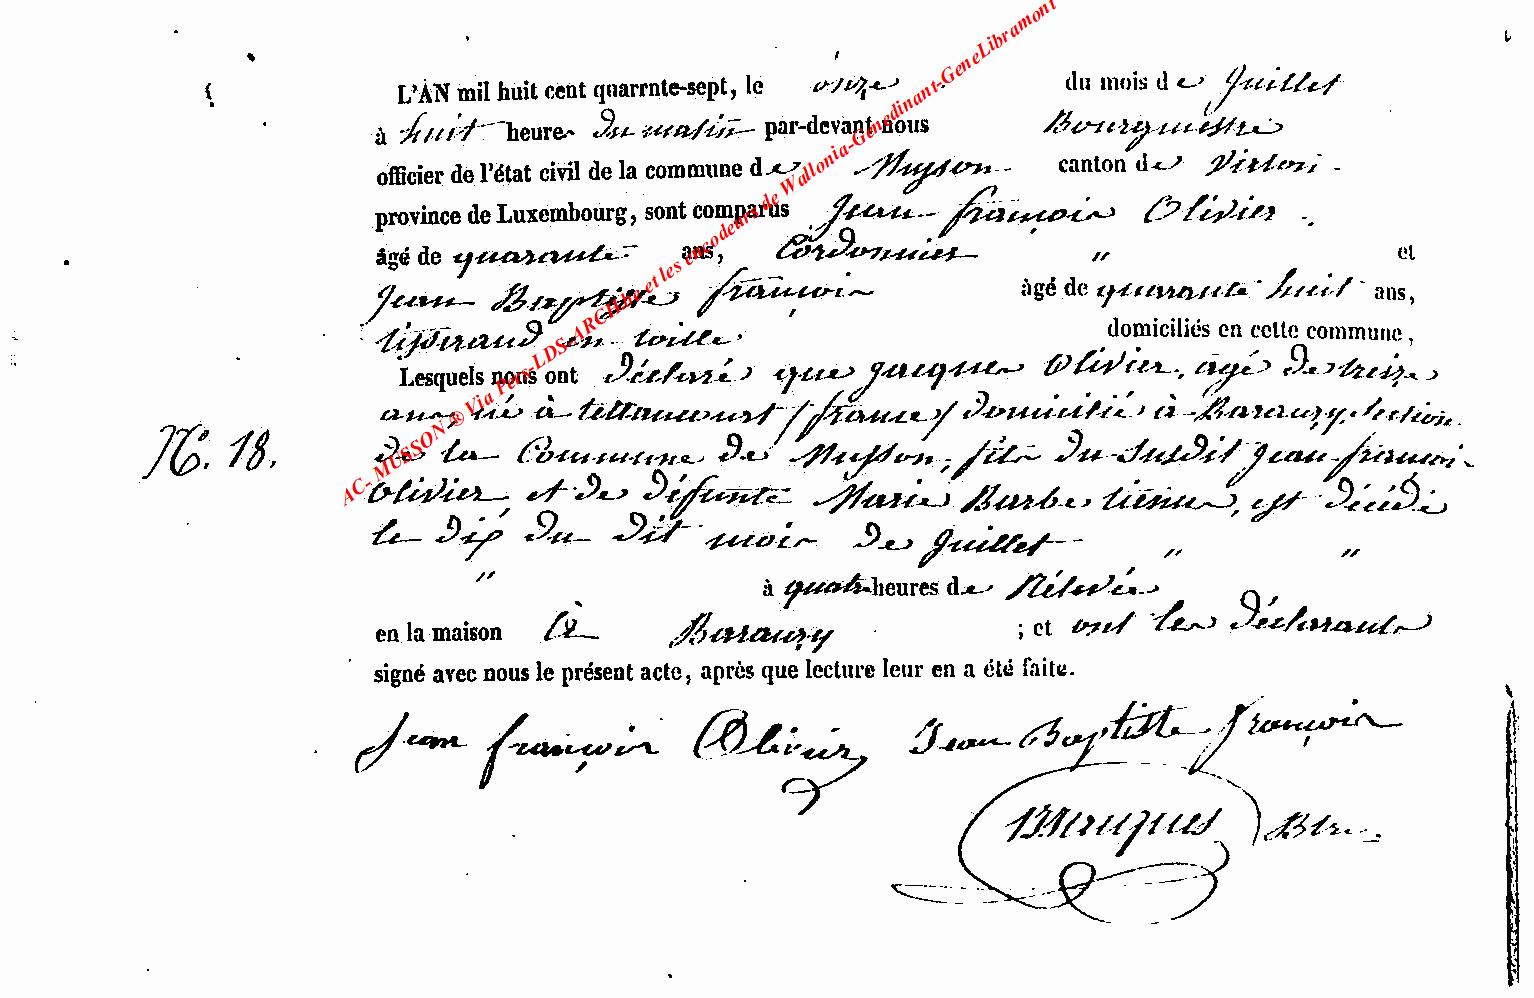 L'AN mil huit cent quarrnte-sept, le onze du mois de Juillet
à huit heures du matin par-devant nous Bourgmestre
officier de l'état civil de la commune de Musson canton de Virton
province de Luxembourg, sont comparus Jean françois Olivier
âgé de quarante ans, Cordonnier " et
Jean Baptiste françois âgé de quarante huit ans,
tisserand en toille domiciliés en cette commune,
Lesquels nous ont déclaré que Jacques Olivier, agé de treize
ans, né à tellancourt (france) domicilié à Baranzy, Section
de la Commune de Musson, fils du susdit Jean françois
Olivier et de défunte Marie Barbe, est décédé
le dix du dit mois de Juillet " "
" à quatre heures de Rélevée
en la maison à Baranzy ; et ont les déclarants
signé avec nous le présent acte, après que lecture leur en a été faite.
N°. 18.
Jean françois Olivier Jean Baptiste françois
Btre
AC-MUSSON ® Via Pers-LDS-ARCHbe et les encodeurs de Wallonia-Genedinant-GeneLibramont